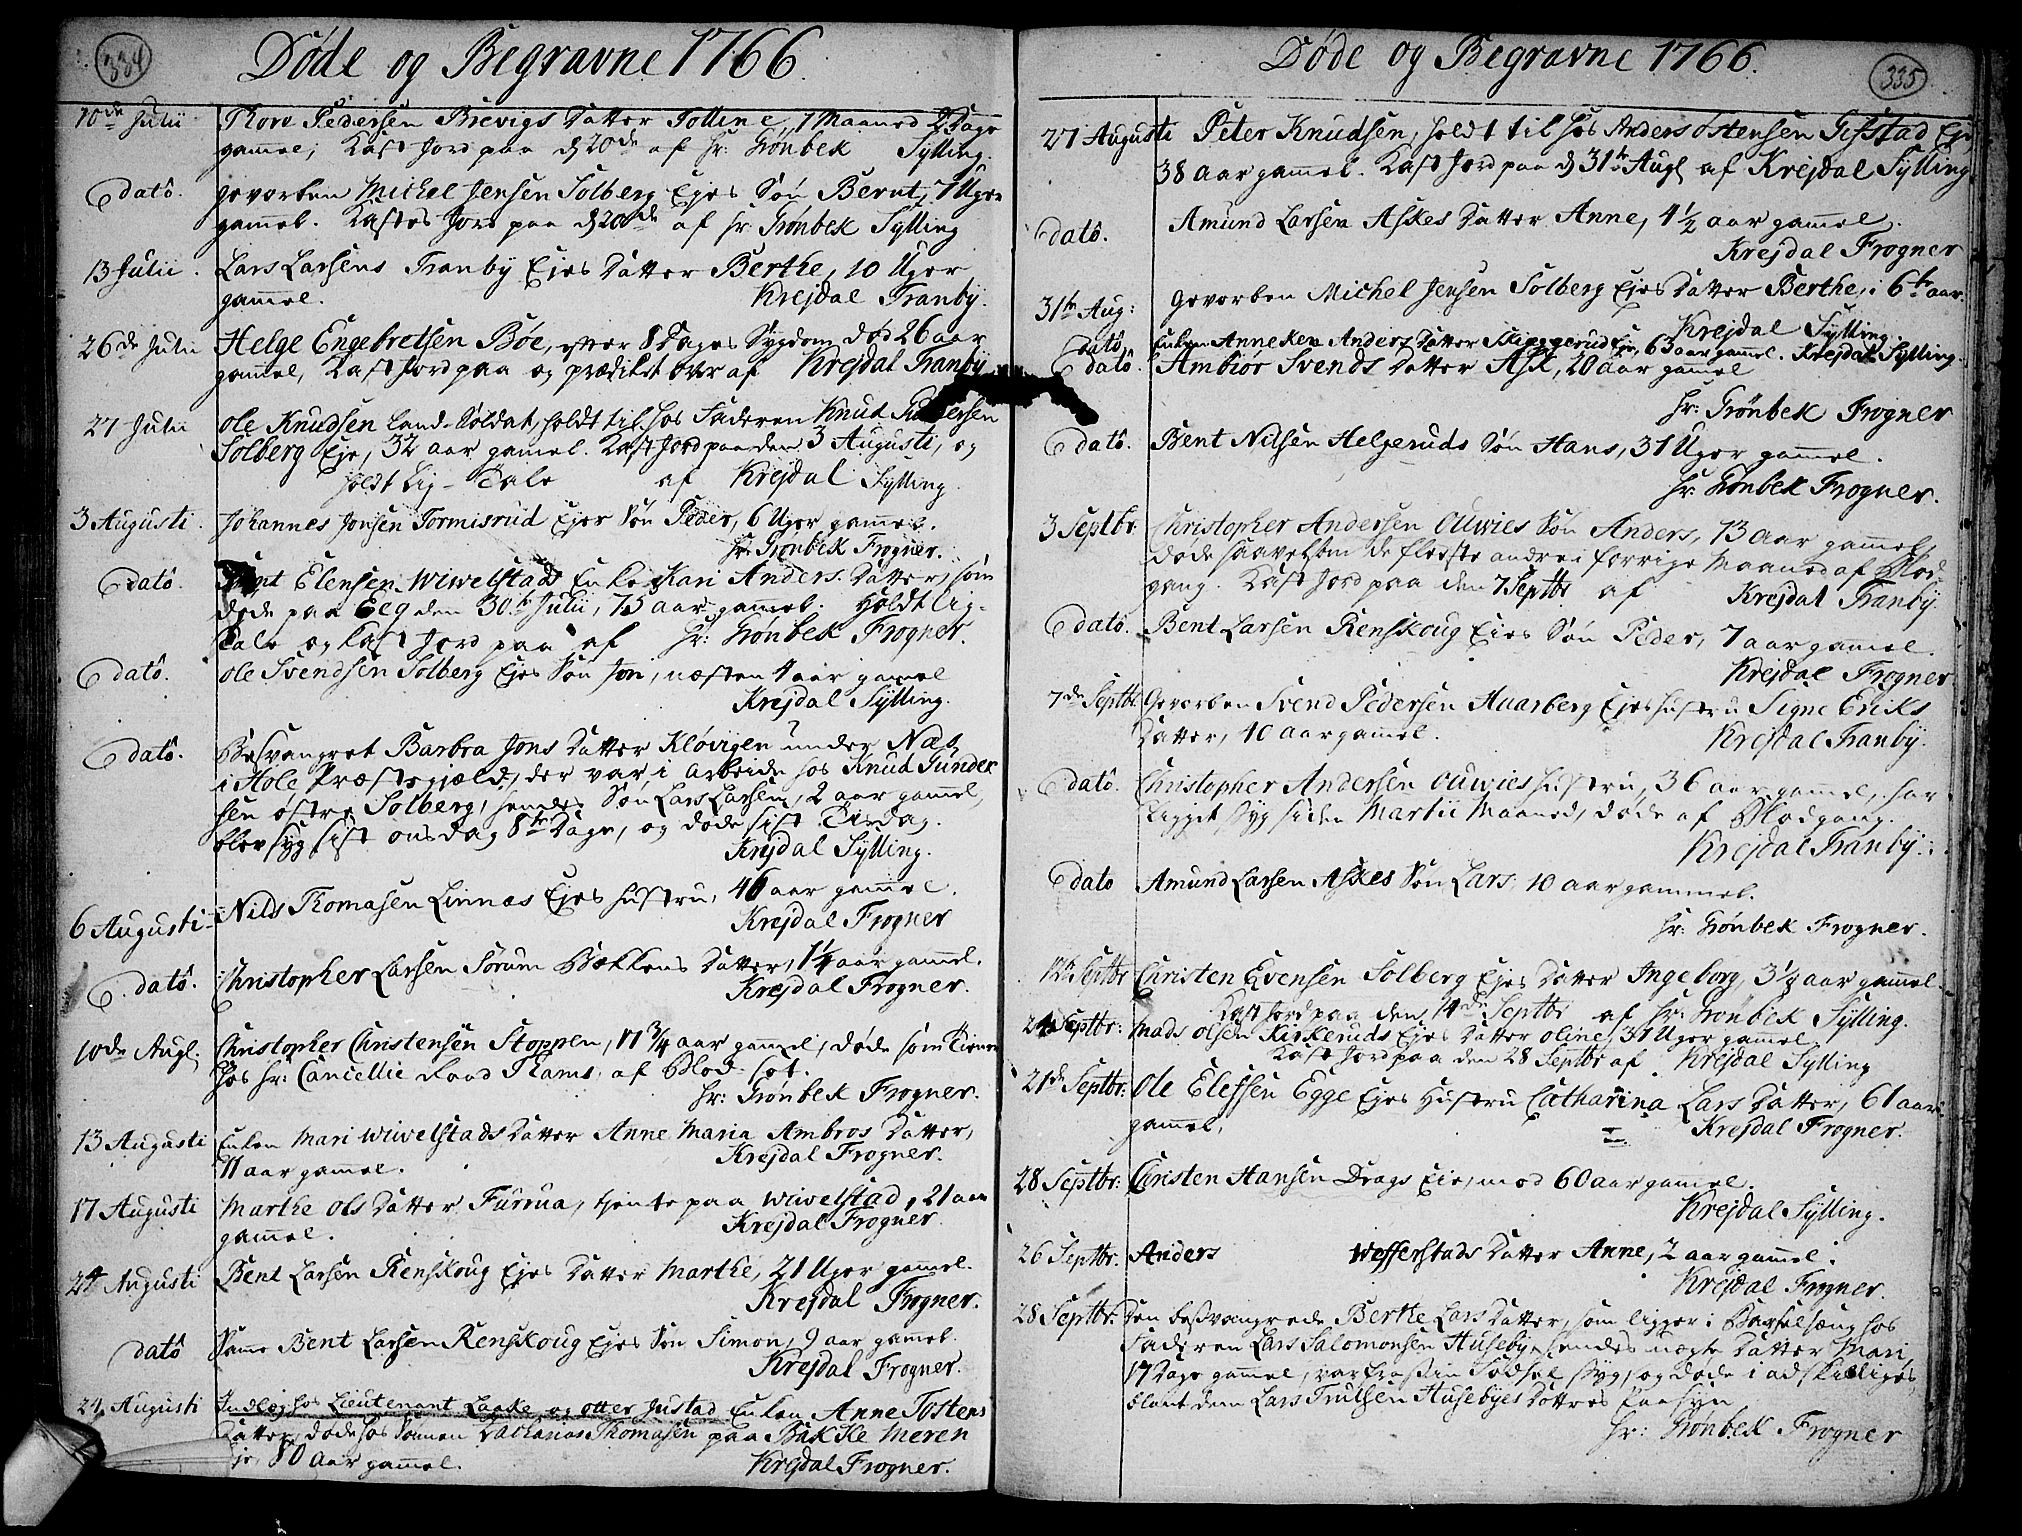 334
Døde og Begravne 1766.
10de Julii Thore Pedersen Brevigs Datter Polline 1 Maaned 2 Dage
gammel, Kast Jord paa d 20de af Hr: Grønbek Sylling.
Edato. Gevorben Michel Jensen Solberg Ejes Søn Bernt, 7 Uger
gammel. Kastes Jord paa d 20de af Hr: Grønbek Sylling
13 Julii. Lars Larsens Tranby Ejes Datter Berthe, 10 Uger
gammel. Krejdal Tranby.
26de Julii Helge Engebretsen Böe, efter 8 Dages Sygdom død 26 aar
gammel, Kast Jord paa og prædiket over af Krejdal Tranby
27 Julii Ole Knudsen Land-Soldat, holdt til hos Faderen Knud
Solberg Eje, 32 aar gamel. Kast Jord paa den 3 Augusti, og
holdt Lig-Tale af Krejdal Sylling
3 Augusti. Johannes Jonsen Tormisrud Ejer Søn Peder, 6 Uger gammel.
Hr: Grønbek Frogner.
Edato. Elensen Wiwelstads Enke Kari Anders Datter, som
døde paa Eeg den 30te Julii, 75 aar gammel. Holdt Lig-
Tale og kast Jord paa af Hr: Grønbek Frogner.
Edato. Ole Svendsen Solberg Ejes Søn Joni, næsten 4 aar gamel
Krejdal Sylling.
Edato. Besvangret Barbra Jons Datter Kløvigen under
i Hole Præstegjæld, der var i Arbeide hos Knud Gunder
sen østre Solberg, hendes Søn Lars Larsen, 2 aar gammel,
blev syg sist onsdag 8te Dage, og døde sist Tirsdag.
Krejdal Sylling.
6 Augusti. Nils Thomasen Linnæs Ejes Hustru, 46 aar gammel.
Krejdal Frogner
E. dato. Christopher Larsen Sørum Bækkens Datter, 1¼ aar gammel.
Krejdal Frogner.
10de Augl. Christopher Christensen Stoppen, 11¾ aar gammel, døde som
hos Hr: Cancellie Raad Thams, af Blod-Sot.
Hr: Grønbek Frogner.
13 Augusti Enken Mari Wiwelstads Datter Anne Maria Ambros Datter,
11 aar gamel. Krejdal Frogner.
17 Augusti Marthe Ols Datter Furrua, tjente paa Wiwelstad, 21 aar
gammel. Krejdal Frogner.
24 Augusti Bent Larsen Renskoug Ejes Datter Marthe, 21 Uger gamel.
Krejdal Frogner.
Edato Samme Bent Larsen Renskoug Ejes Søn Simon, 9 aar gamel.
Krejdal Frogner.
24 Augusti Indlæg hos Lieutenant Laake og Otter Justad Enken Anne Tostens
Datter, døde hos Sønnen Zacharias Thomasen paa Bakke Meren
Eje, 80 Aar gammel. Krejdal Frogner.
335
Døde og Begravne 1766.
27 Augusti Peter Knudsen, holdt til hos Anders Østensen Gifstad Eje
38 aar gammel. Kast Jord paa d 31te Augl af Krejdal Sylling
Edato. Amund Larsen Askes Datter Anne, 4½ aar gammel.
Krejdal Frogner
31te Aug: Gevorben Michel Jensen Solberg Ejes Datter Berthe, i 6te aar.
Krejdal Sylling.
Edato. Enken Anneken Anders Datter Skieggerud Eje, 63 aar gammel. Krejdal Sylling.
Edato. Ambiör Svends Datter Ask, 20 aar gamel
Hr: Grönbek Frogner
Edato. Bent Nilsen Helgeruds Søn Hans, 31 Uger gammel.
Hr: Grönbek Frogner.
3 Septbr Christopher Andersen Ouwies Søn Anders, 13 aar gammel,
døde saavelsom de fleeste andre i forrige Maaned af Blod-
gang. Kast Jord paa den 7 Septbr af Krejdal Tranby.
Edato. Bent Larsen Renskoug Ejes Søn Peder, 7 aar gammel.
Krejdal Frogner
7de Septbr. Gevorben Svend Pedersen Huarberg Ejes Hustru Signe Eriks
Datter, 40 aar gamel. Krejdal Tranby.
Edato. Christopher Andersen Ouwies Hustru, 36 aar gamel, har
ligget syg siden Martii Maaned, døde af Blodgang.
Krejdal Tranby.
Edato Amund Larsen Askes Søn Lars, 10 aar gammel.
Hr: Grønbek Frogner.
12te Septbr Christen Evensen Solberg Ejes Datter Ingeborg, 3½ aar gammel.
Kast Jord paa den 14de Septbr af Hr: Grönbek Sylling.
24 Septbr: Mads Olsen Kirkeruds Ejes Datter Oline, 31 Uger gamel
Kast Jord paa den 28 Septbr af Krejdal Sylling
21de Septbr: Ole Elefsen Egge Ejes Hustru Catharina Lars Datter, 61 aar
gammel. Krejdal Frogner.
28 Septbr: Christen Hansen Drags Eie, mod 60 aar gamel.
Krejdal Sylling.
26 Septbr. Anders Wefferstads Datter Anne, 2 aar gamel.
Krejdal Frogner.
28 Septbr. Den besvangrede Berthe Lars Datter, som ligger i Barselseng hos
Faderen Lars Salomonsen Huseby, hendes uægte Datter Mari
17 Dage gammel, var fra sin Fødsel syg, og døde i adskillige
blant dem Lars Trulsen Husebyes Dottres Paasyn
Hr: Grönbek Frogner